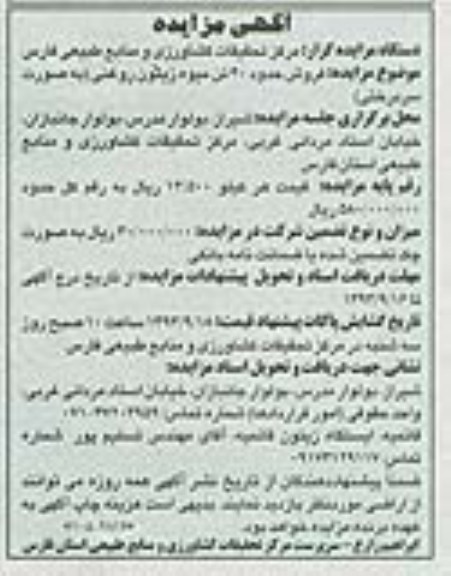 آگهی مزایده
دستگاه مزایده گزار: مرکز تحقیقات کشاورزی و منابع طبیعی فارس
موضوع مزایده: فروش حدود ۴۰ تن میوه زیتون روغنی (به صورت
سردرختی)
محل برگزاری جلسه مزایده: شیراز، بولوار مدرس، بولوار جانبازان،
خیابان استاد مردانی غربی، مرکز تحقیقات کشاورزی و منابع
طبیعی استان فارس
رقم پایه مزایده: قیمت هر کیلو ریال به رقم کل حدود
ریال
میزان و نوع تضمین شرکت در مزایده: ریال به صورت
چک تضمین شده یا ضمانت نامه بانکی
مهلت دریافت اسناد و تحویل پیشنهادات مزایده: از تاریخ درج آگهی
تا ۱۳۹۳/۹/۱۶
تاریخ گشایش پاکات پیشنهاد قیمت: ۱۳۹۳/۹/۱۸ ساعت ۱۰ صبح روز
سه شنبه در مرکز تحقیقات کشاورزی و منابع طبیعی فارس
نشانی جهت دریافت و تحویل اسناد مزایده:
شیراز، بولوار مدرس، بولوار جانبازان، خیابان استاد مردانی غربی،
واحد حقوقی (امور قراردادها) شماره تماس:
قائمیه، ایستگاه زیتون قائمیه، آقای مهندس تسلیم پور شماره
تماس:
ضمنا پیشنهاددهندگان از تاریخ نشر آگهی همه روزه می توانند
از اراضی موردنظر بازدید نمایند. بدیهی است هزینه چاپ آگهی به
عهده برنده مزایده خواهد بود.
ابراهیم زارع - سرپرست مرکز تحقیقات کشاورزی و منابع طبیعی استان فارس